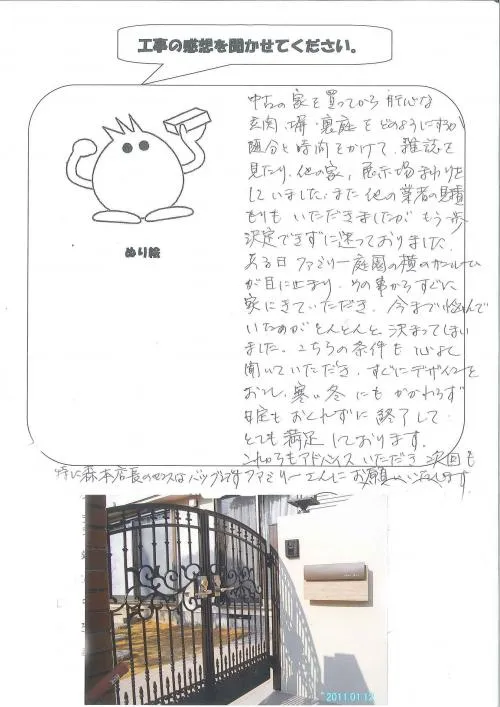 工事の感想を聞かせてください。
ぬり絵
中古の家を買ってから 肝心な
玄関、塀・裏庭 をどのようにするか
随分と時間をかけて、雑誌を
見たり、他の家、展示場まわりを
していました。また他の業者の見積
もりも いただきましたが もう一歩
決定できずに迷っておりました。
ある日 ファミリー庭園の横の
が目に止まり、その事からすぐに
家にきていただき、今まで悩んで
いたのがとんとんと 決まってしまい
ました。こちらの条件も 心よく
聞いていただき、すぐにデザインを
おこし、寒い冬 にも かかわらず
日定も おくれずに 終了して
とても 満足 しております。
これからもアドバイスいただき 次回も
特に森本店長のセンスはバツグンです ファミリーさんに お願いいたします。
2011.01.12